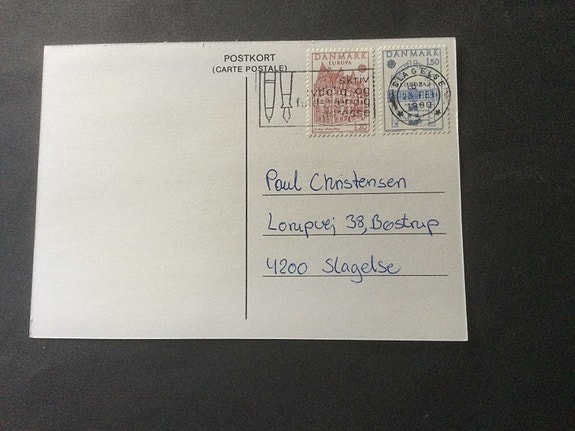 POSTKORT
(CARTE POSTALE)
DANMARK
EUROPA
1.20
DANMARK
1.50
skriv
tydelig og
fuldstændig
adresse
SLAGELSE
1980
Paul Christensen
Lorupvej 38, Bostrup
4200 Slagelse